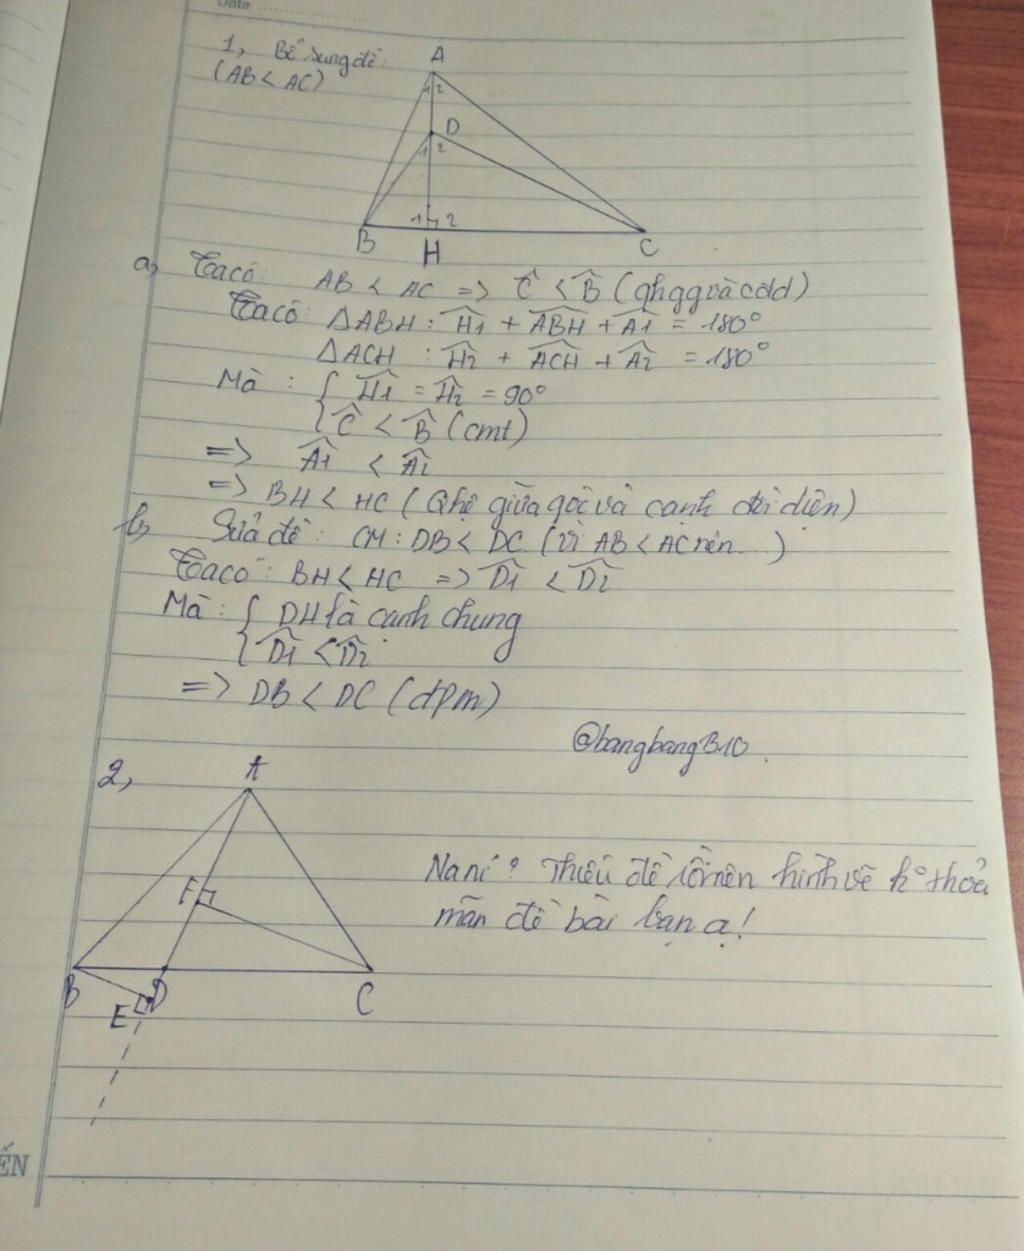 Date
1, Bổ sung đề:
(AB < AC)
A
1 2
D
1 2
1 2
B H C
a, Ta có: AB < AC => Ĉ < B̂ (qhggvàcđd)
Ta có ΔABH: Ĥ1 + ABH + Â1 = 180°
ΔACH: Ĥ2 + ACH + Â2 = 180°
Mà: { Ĥ1 = Ĥ2 = 90°
Ĉ < B̂ (cmt)
=> Â1 < Â2
=> BH < HC (Qhệ giữa góc và cạnh đối diện)
b, Sửa đề: CM: DB < DC (vì AB < AC nên...)
Ta có: BH < HC => D̂1 < D̂2
Mà: { DH là cạnh chung
D̂1 < D̂2
=> DB < DC (đpcm)
@bangbangB10
2,
A
F
Nani? Thiếu đề rồi nên hình vẽ k° thoả
mãn đề bài bạn ạ!
B D C
E
ẾN